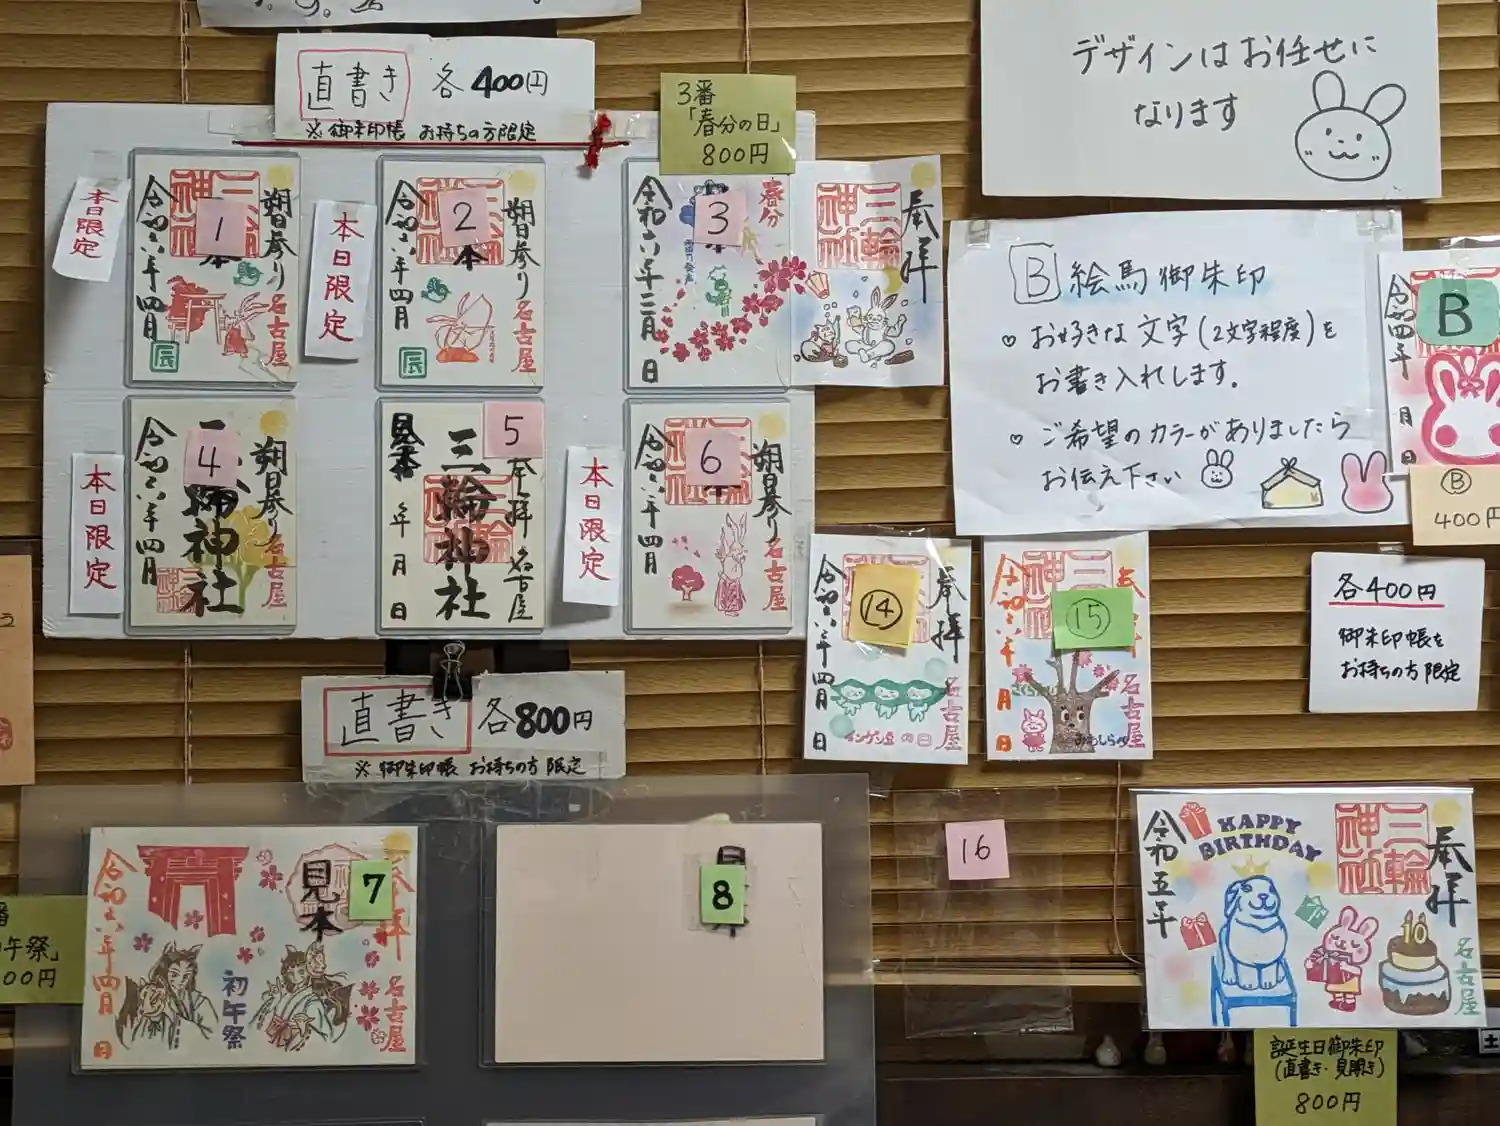 直書き 各400円
※御朱印帳 お持ちの方限定
3番
「春分の日」
800円
デザインはお任せに
なります
本日限定
朔日参り
1
令和六年四月
名古屋
辰
本日限定
朔日参り
2
令和六年四月
名古屋
辰
春分
3
令和六年三月 日
奉拝
三輪神社
B 絵馬御朱印
♡ お好きな文字(2文字程度)を
お書き入れします。
♡ ご希望のカラーがありましたら
お伝え下さい
B
令和四年 月 日
B
400円
本日限定
朔日参り
4
神社
令和六年四月
名古屋
5
奉拝 名古屋
三輪神社
見本 年 月 日
本日限定
朔日参り
6
令和六年四月
名古屋
14
奉拝
令和六年四月 日
名古屋
インゲン豆の日
15
令和六年 月 日
名古屋
各400円
御朱印帳を
お持ちの方限定
直書き 各800円
※御朱印帳 お持ちの方限定
午祭」
00円
7
見本
令和六年四月 日
初午祭
名古屋
8
16
HAPPY
BIRTHDAY
令和五年
三輪神社
奉拝
10
名古屋
誕生日御朱印
(直書き・見開き)
800円
土